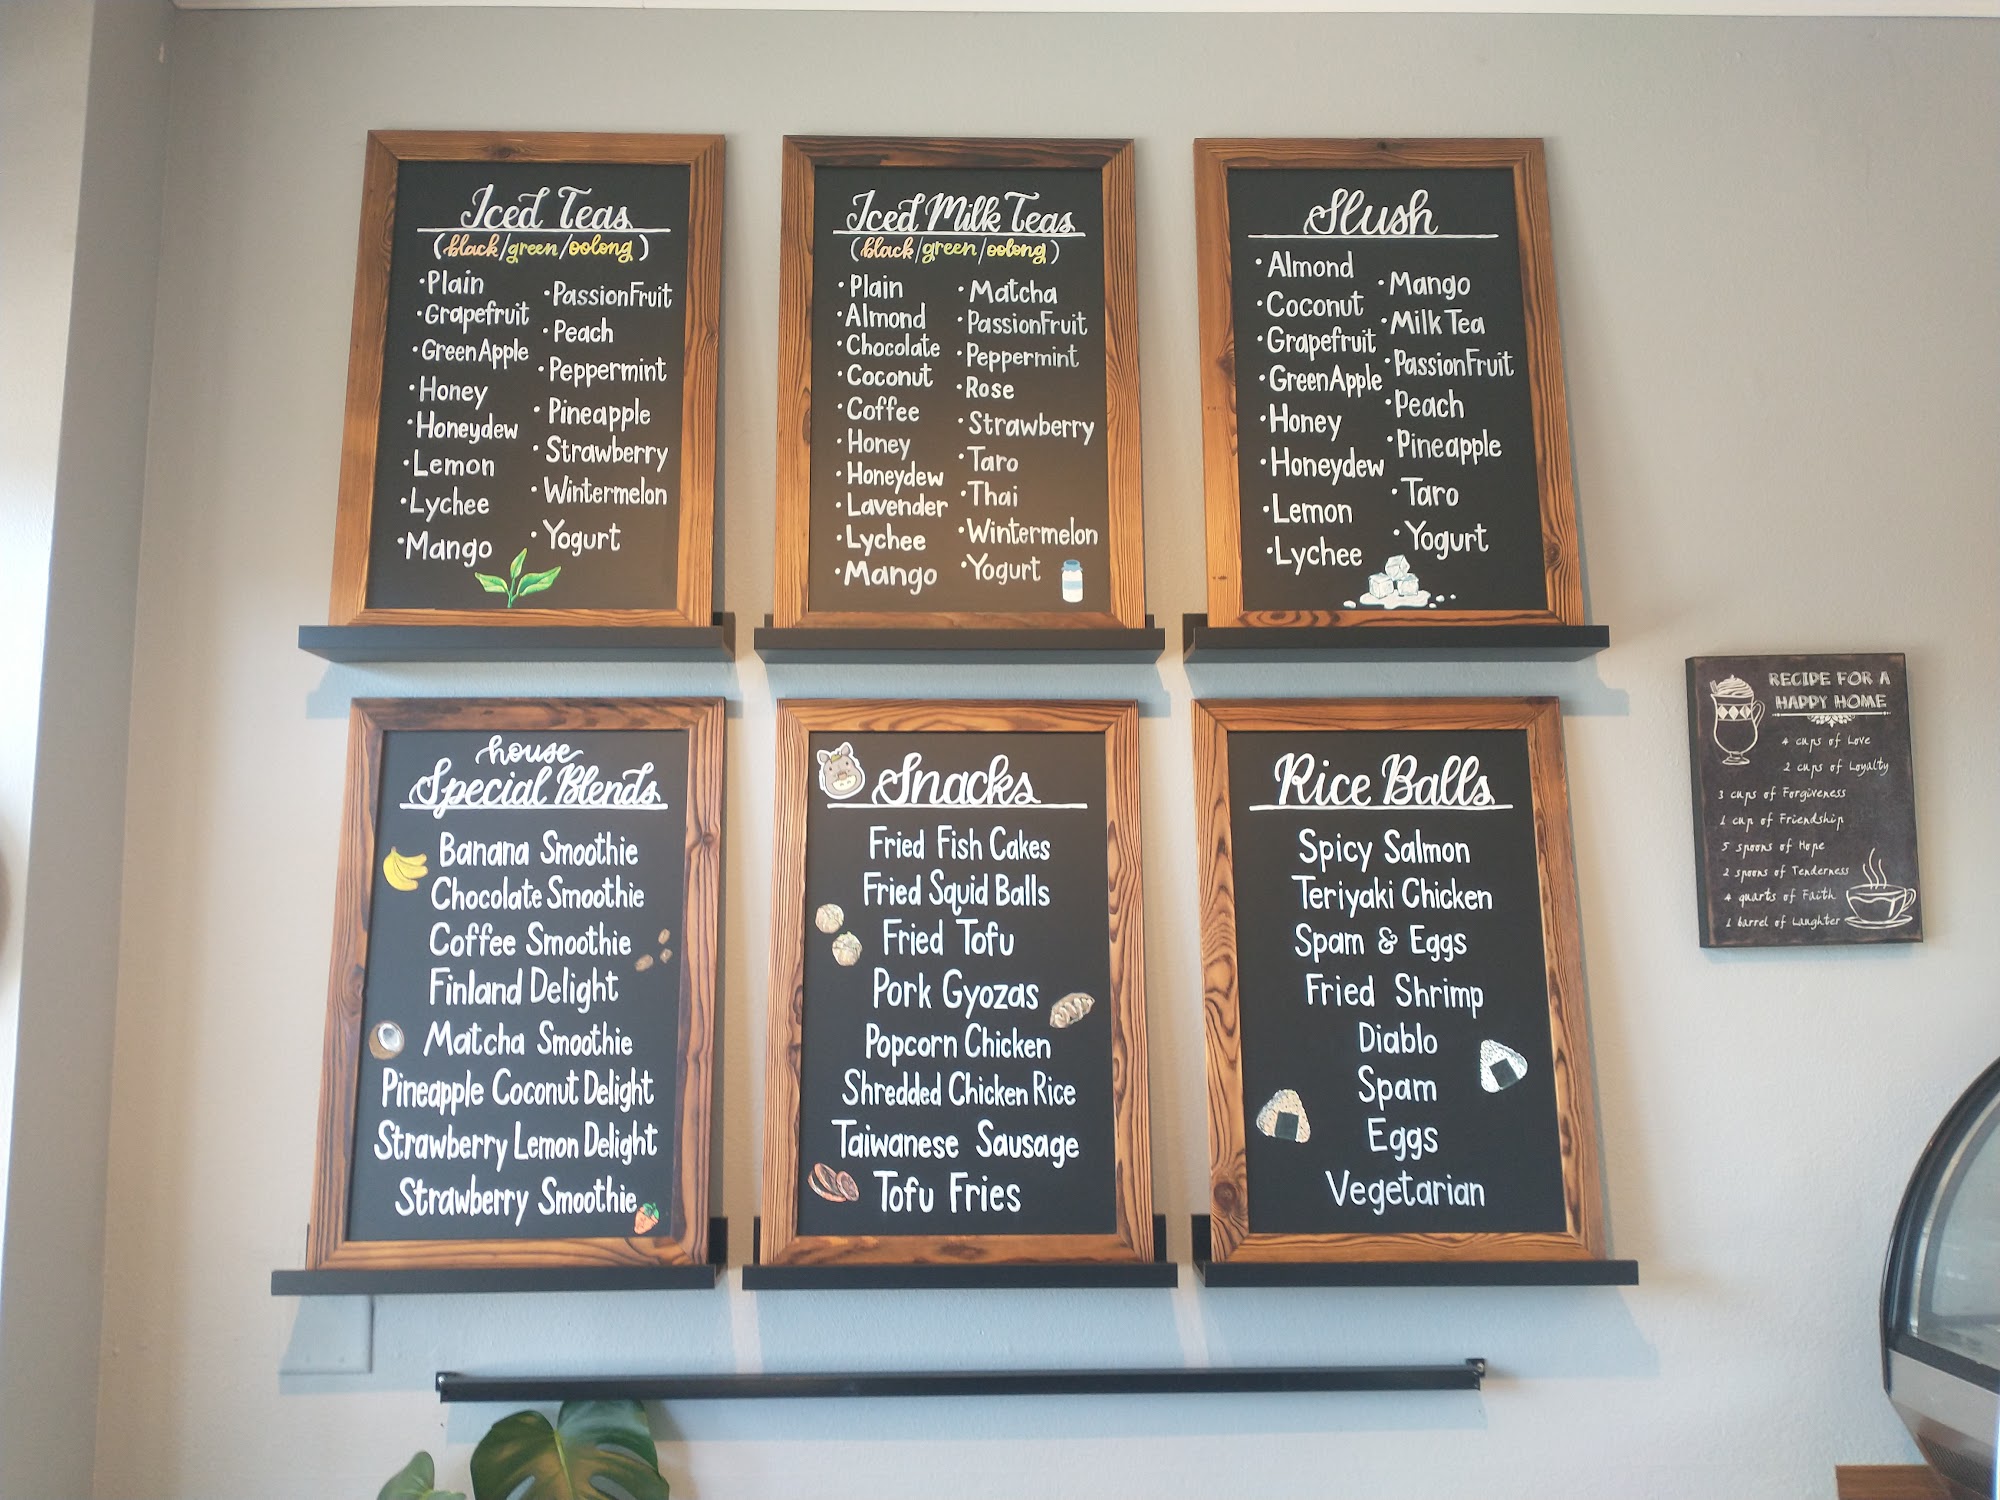 Iced Teas
(black/green/oolong)
•Plain
•Grapefruit
•Green Apple
•Honey
•Honeydew
•Lemon
•Lychee
•Mango
•PassionFruit
•Peach
•Peppermint
•Pineapple
•Strawberry
•Wintermelon
•Yogurt
Iced Milk Teas
(black/green/oolong)
•Plain
•Almond
•Chocolate
•Coconut
•Coffee
•Honey
•Honeydew
•Lavender
•Lychee
•Mango
•Matcha
•PassionFruit
•Peppermint
•Rose
•Strawberry
•Taro
•Thai
•Wintermelon
•Yogurt
Slush
•Almond
•Coconut
•Grapefruit
•Green Apple
•Honey
•Honeydew
•Lemon
•Lychee
•Mango
•Milk Tea
•PassionFruit
•Peach
•Pineapple
•Taro
•Yogurt
house
Special Blends
Banana Smoothie
Chocolate Smoothie
Coffee Smoothie
Finland Delight
Matcha Smoothie
Pineapple Coconut Delight
Strawberry Lemon Delight
Strawberry Smoothie
Snacks
Fried Fish Cakes
Fried Squid Balls
Fried Tofu
Pork Gyozas
Popcorn Chicken
Shredded Chicken Rice
Taiwanese Sausage
Tofu Fries
Rice Balls
Spicy Salmon
Teriyaki Chicken
Spam & Eggs
Fried Shrimp
Diablo
Spam
Eggs
Vegetarian
RECIPE FOR A
HAPPY HOME
4 cups of Love
2 cups of Loyalty
3 cups of Forgiveness
1 cup of Friendship
5 spoons of Hope
2 spoons of Tenderness
4 quarts of Faith
1 barrel of Laughter